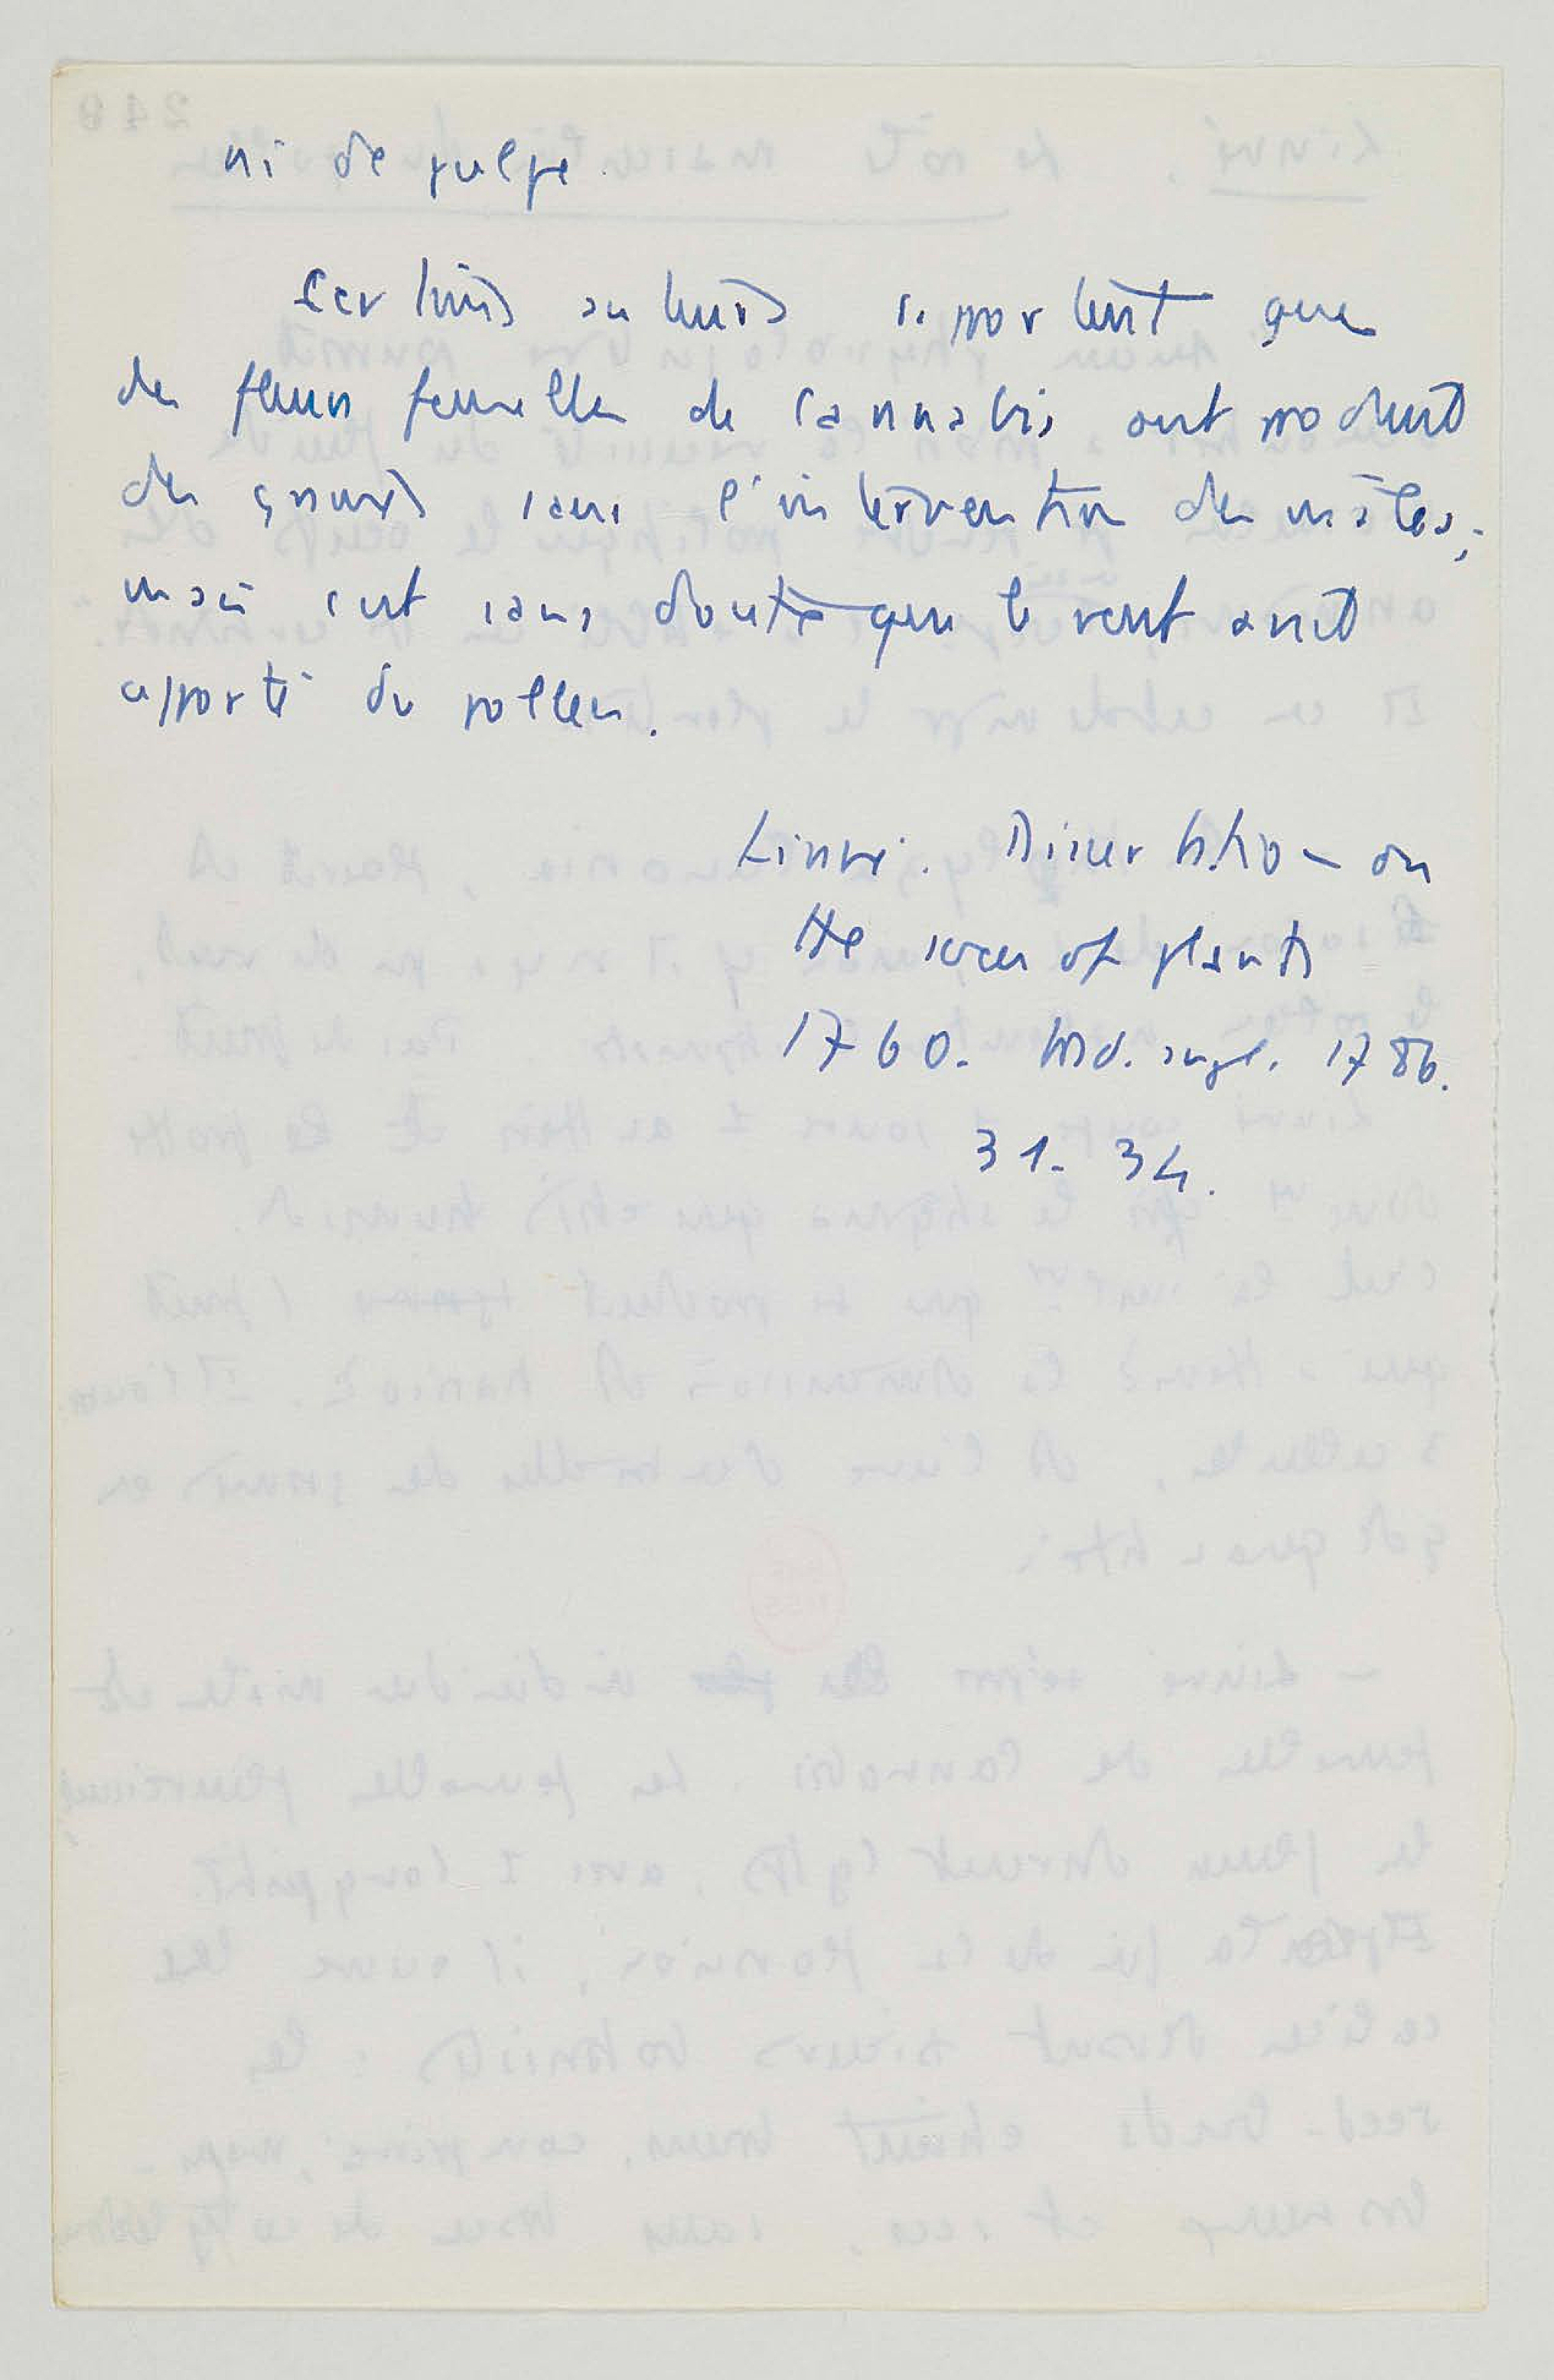 ni de pulpe.
Certains auteurs rapportent que
des fleurs femelles de Cannabis ont produit
des graines sans l'intervention des mâles ;
mais c'est sans doute que le vent avait
apporté du pollen.
Linné. Dissertation on
the sexes of plants
1760. trad. angl. 1786.
31-34.